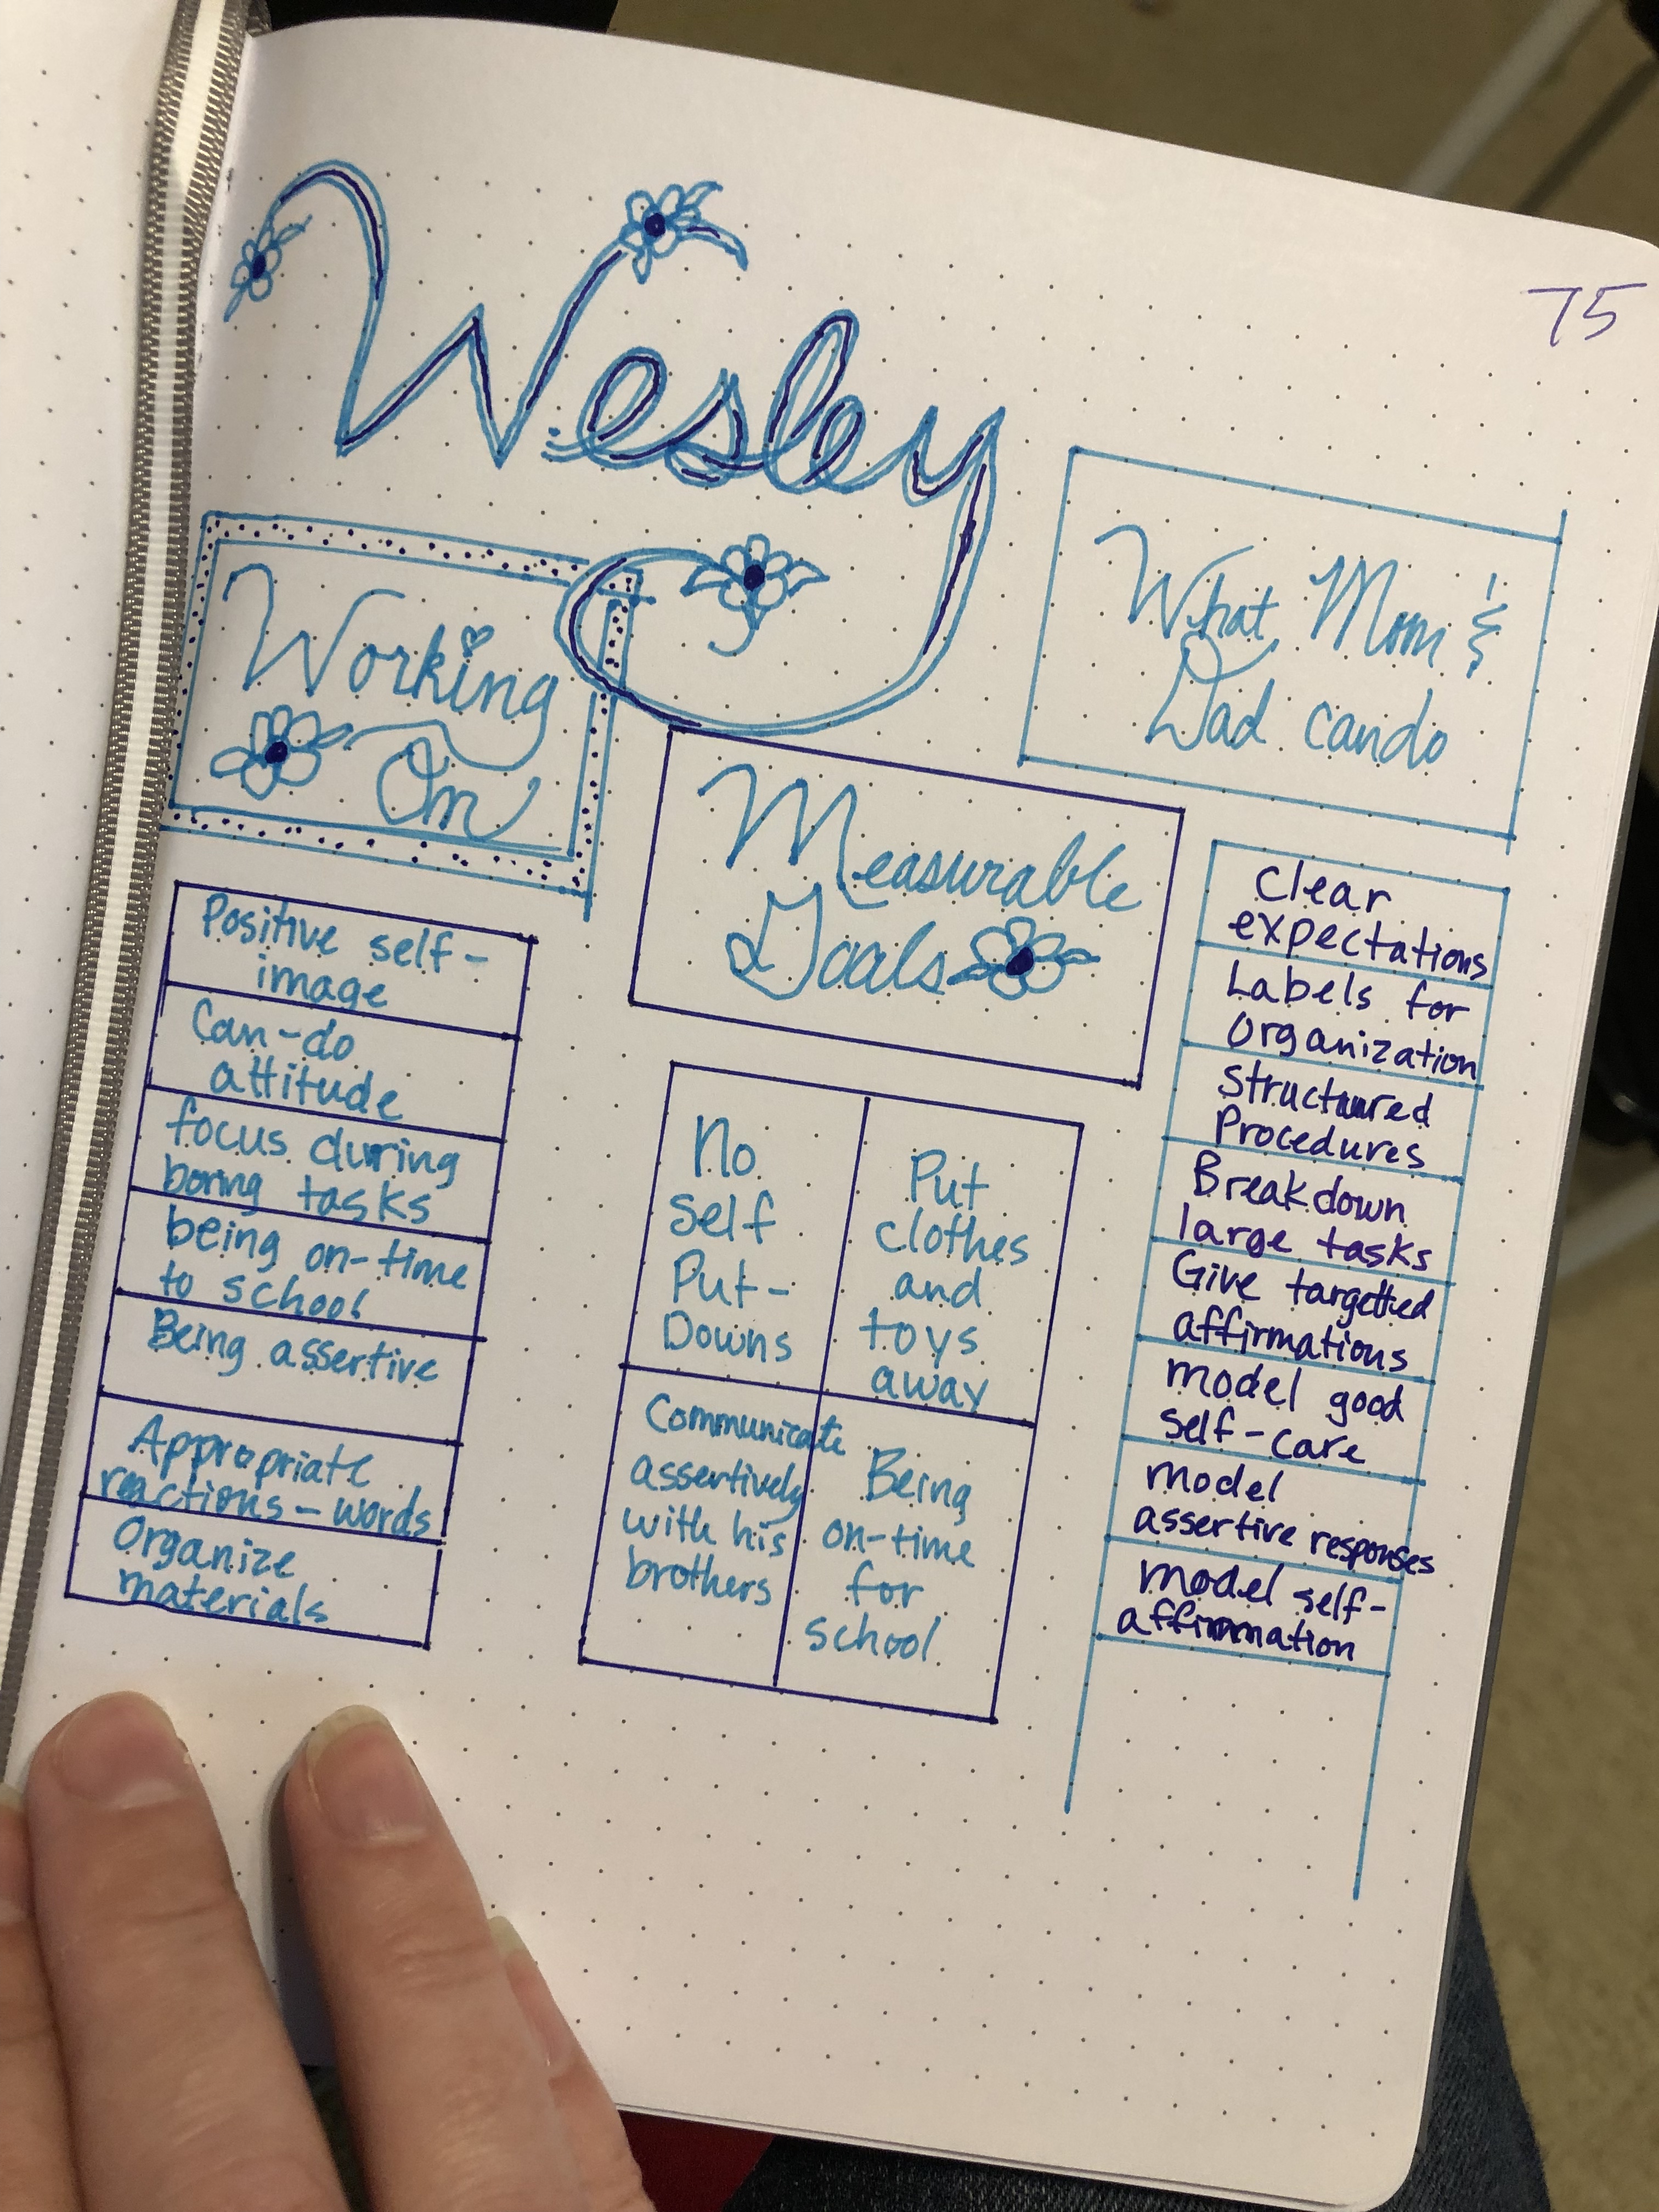 75
Wesley
Working
On
Positive self-
image
Can-do
attitude
focus during
boring tasks
being on-time
to school
Being assertive
Appropriate
reactions - words
Organize
materials
Measurable
Goals
No
Self
Put-
Downs
Put
clothes
and
toys
away
Communicate
assertively
with his
brothers
Being
on-time
for
school
What Mom &
Dad can do
Clear
expectations
Labels for
organization
Structured
Procedures
Breakdown
large tasks
Give targetted
affirmations
model good
self-care
model
assertive responses
model self-
affirmation